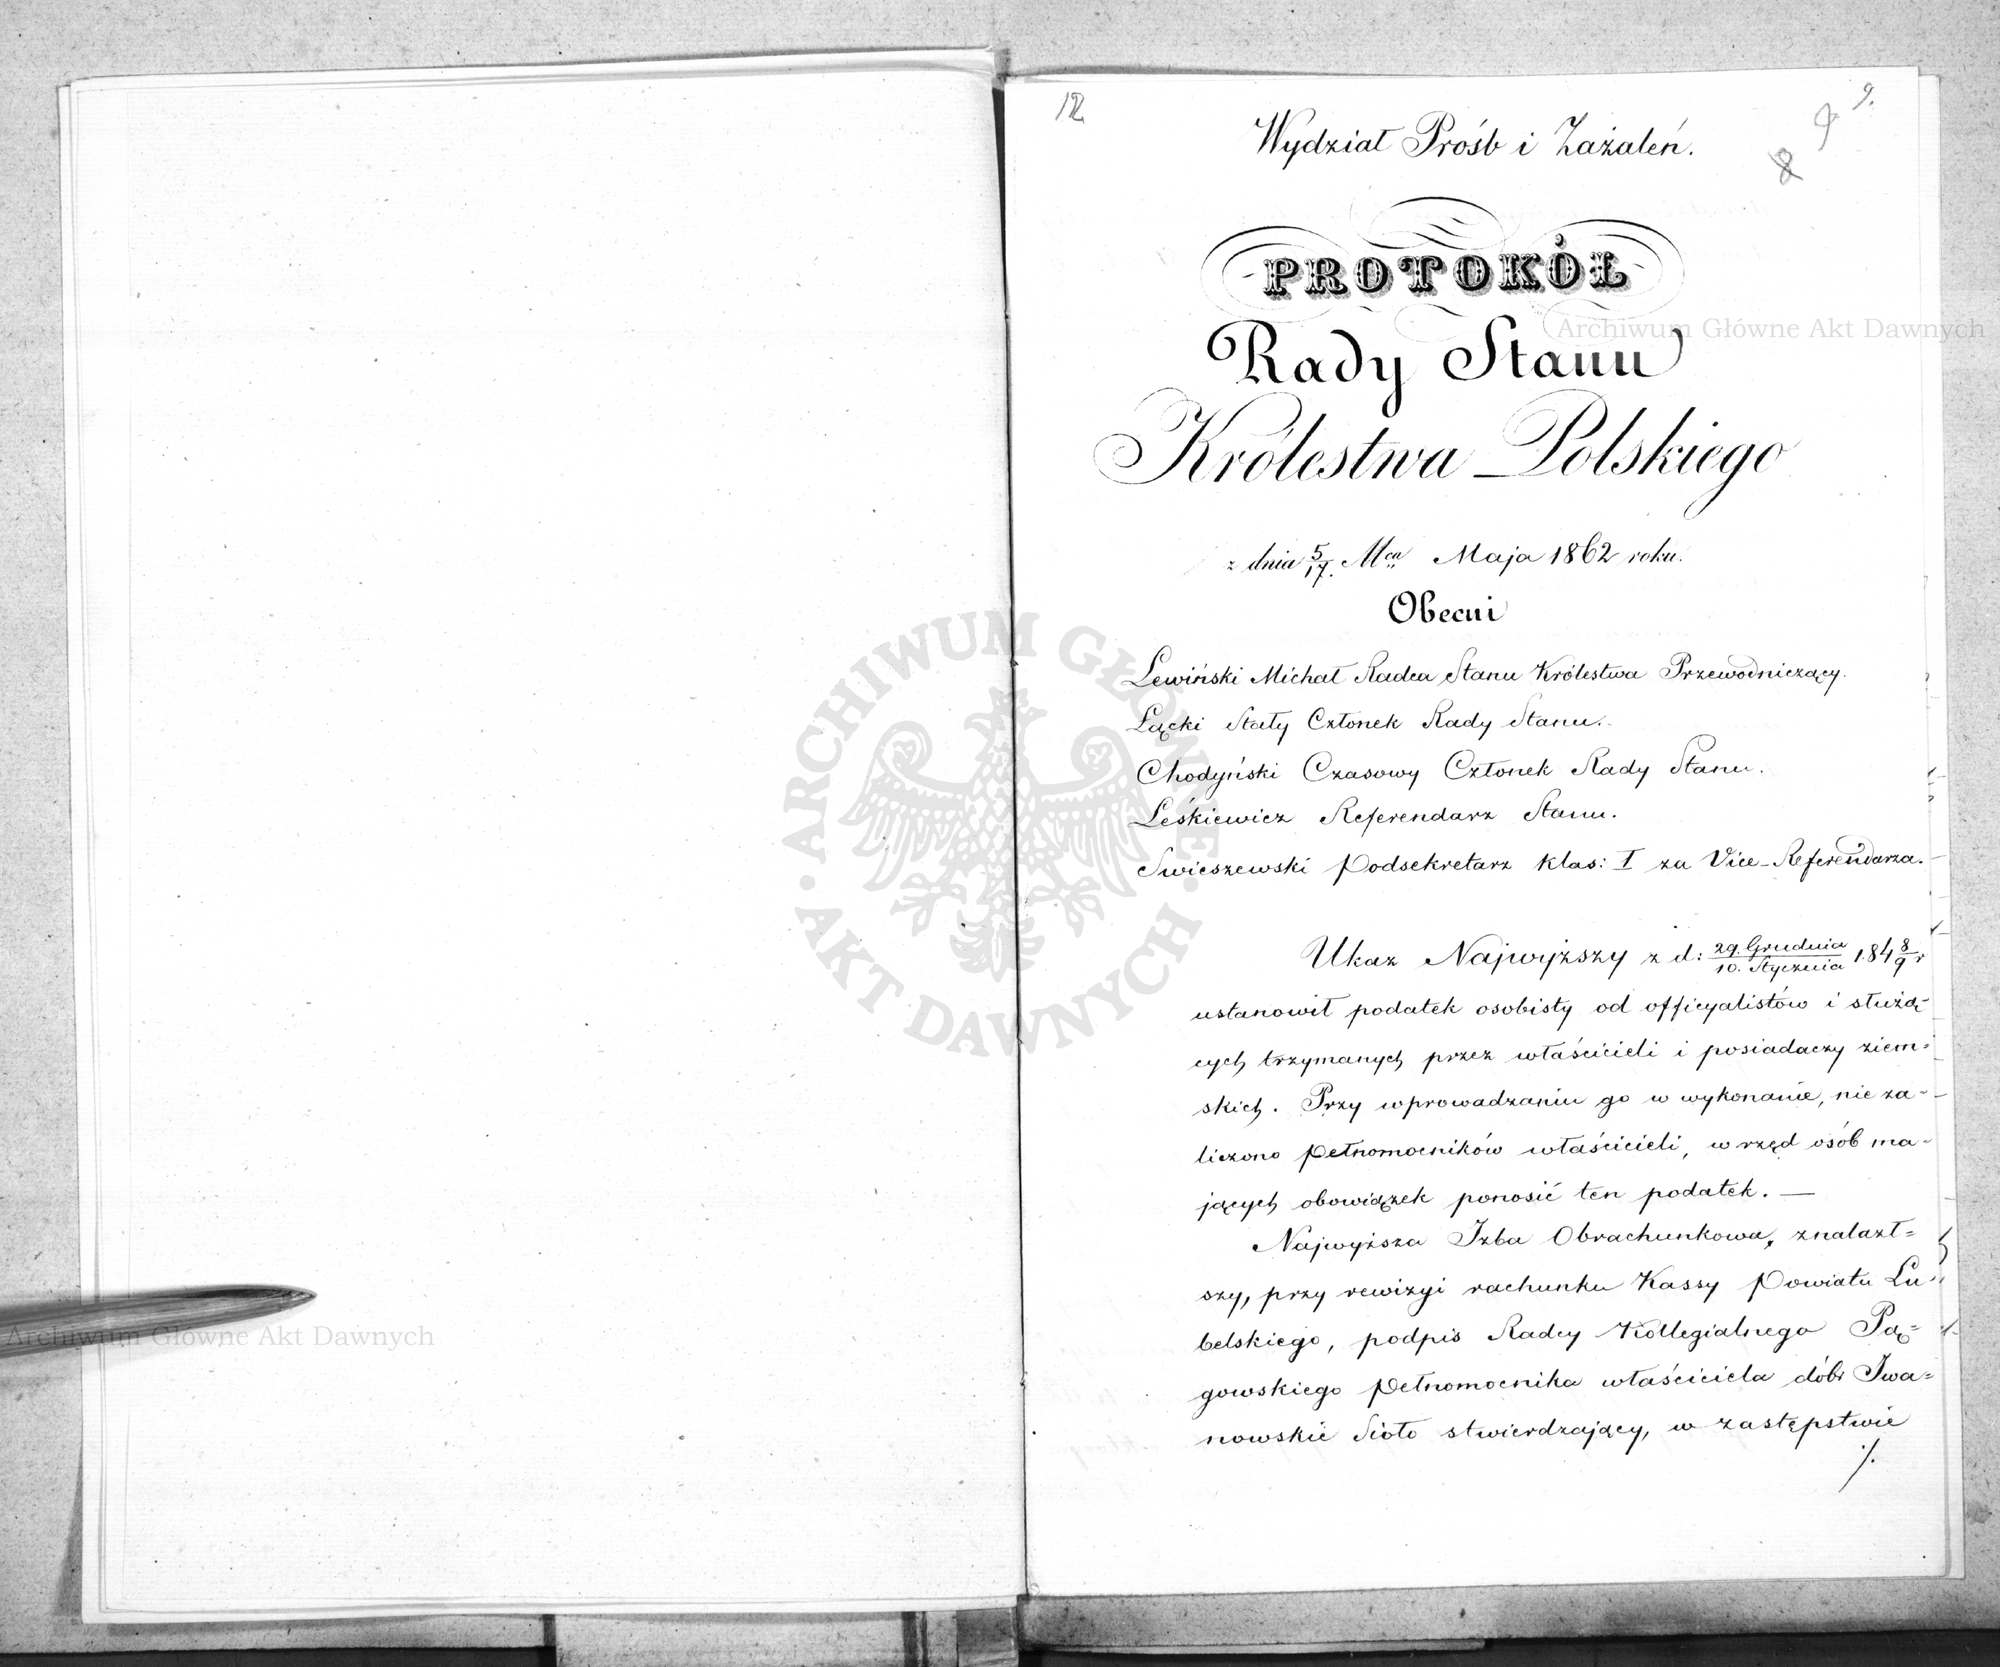 12
9.
9
8
Wydział Próśb i Zażaleń.
PROTOKÓŁ
Rady Stanu
Królestwa Polskiego
z dnia 5/17. Mca Maja 1862 roku.
Obecni
Lewiński Michał Radca Stanu Królestwa Przewodniczący.
Łącki Stały Członek Rady Stanu.
Chodyński Czasowy Członek Rady Stanu.
Leśkiewicz Referendarz Stanu.
Swieszewski Podsekretarz klas: I za Vice-Referendarza.
Ukaz Najwyższy z d: 29. Grudnia/10. Stycznia 184 8/9 r
ustanowił podatek osobisty od officyalistów i służą-
cych trzymanych przez właścicieli i posiadaczy ziem-
skich. Przy wprowadzaniu go w wykonanie, nie za-
liczono pełnomocników właścicieli, w rzęd osób ma-
jących obowiązek ponosić ten podatek. —
Najwyższa Izba Obrachunkowa, znalazł=
szy, przy rewizyi rachunku Kassy Powiatu Lu-
belskiego, podpis Radcy Kollegialnego Pą=
gowskiego pełnomocnika właściciela dóbr Iwa=
nowskie Sioło stwierdzający, w zastępstwie
./.
Archiwum Główne Akt Dawnych
ARCHIWUM GŁÓWNE • AKT DAWNYCH •
Archiwum Główne Akt Dawnych